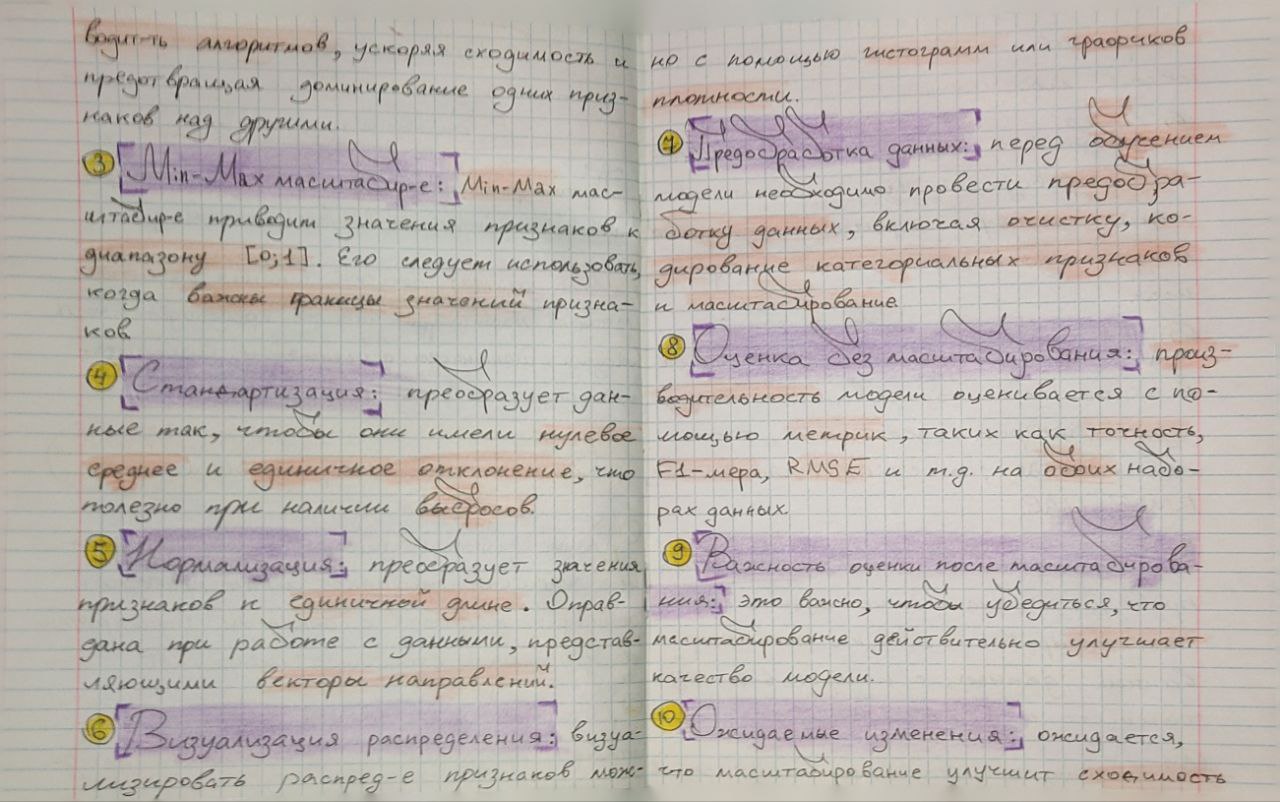 водит-ть алгоритмов, ускоряя сходимость и
предотвращая доминирование одних приз-
наков над другими.
3 Min-Max масштабир-е: Min-Max мас-
штабир-е приводит значения признаков к
диапазону [0;1]. Его следует использовать,
когда важны границы значений призна-
ков
4 Стандартизация: преобразует дан-
ные так, чтобы они имели нулевое
среднее и единичное отклонение, что
полезно при наличии выбросов.
5 Нормализация: преобразует значения
признаков к единичной длине. Оправ-
дана при работе с данными, представ-
ляющими векторы направлений.
6 Визуализация распределения: визуа-
лизировать распред-е признаков мож-
но с помощью гистограмм или графиков
плотности.
7 Предобработка данных: перед обучением
модели необходимо провести предобра-
ботку данных, включая очистку, ко-
дирование категориальных признаков
и масштабирование
8 Оценка без масштабирования: произ-
водительность модели оценивается с по-
мощью метрик, таких как точность,
F1-мера, RMSE и т.д. на обоих набо-
рах данных.
9 Важность оценки после масштабирова-
ния: это важно, чтобы убедиться, что
масштабирование действительно улучшает
качество модели.
10 Ожидаемые изменения: ожидается,
что масштабирование улучшит сходимость